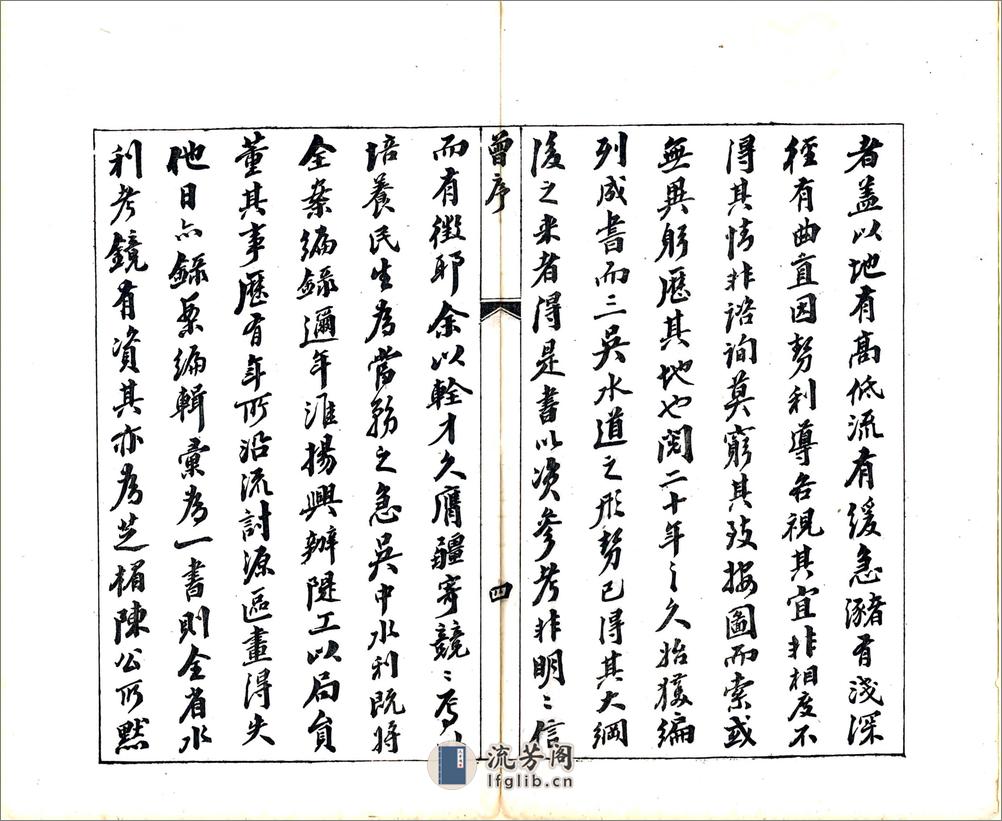 者蓋以地有高低流有緩急瀦有淺深
徑有曲直因勢利導各視其宜非相度不
得其情非諮詢莫窮其致按圖而索或
無異躬歷其地也閱二十年〻久始獲編
列成書而三吳水道之形勢已得其大綱
後之來者得是書以資參考非明〻信
曾序
四
而有徵耶余以輇才久膺疆寄競〻焉以
培養民生為當務之急吳中水利既將
全案編錄邇年淮揚興辦隄工以局員
董其事歷有年所沿流討源區畫得失
他日亦錄案編輯彙為一書則全省水
利考鏡有資其亦為芝楣陳公所默
流芳阁
lfglib.cn